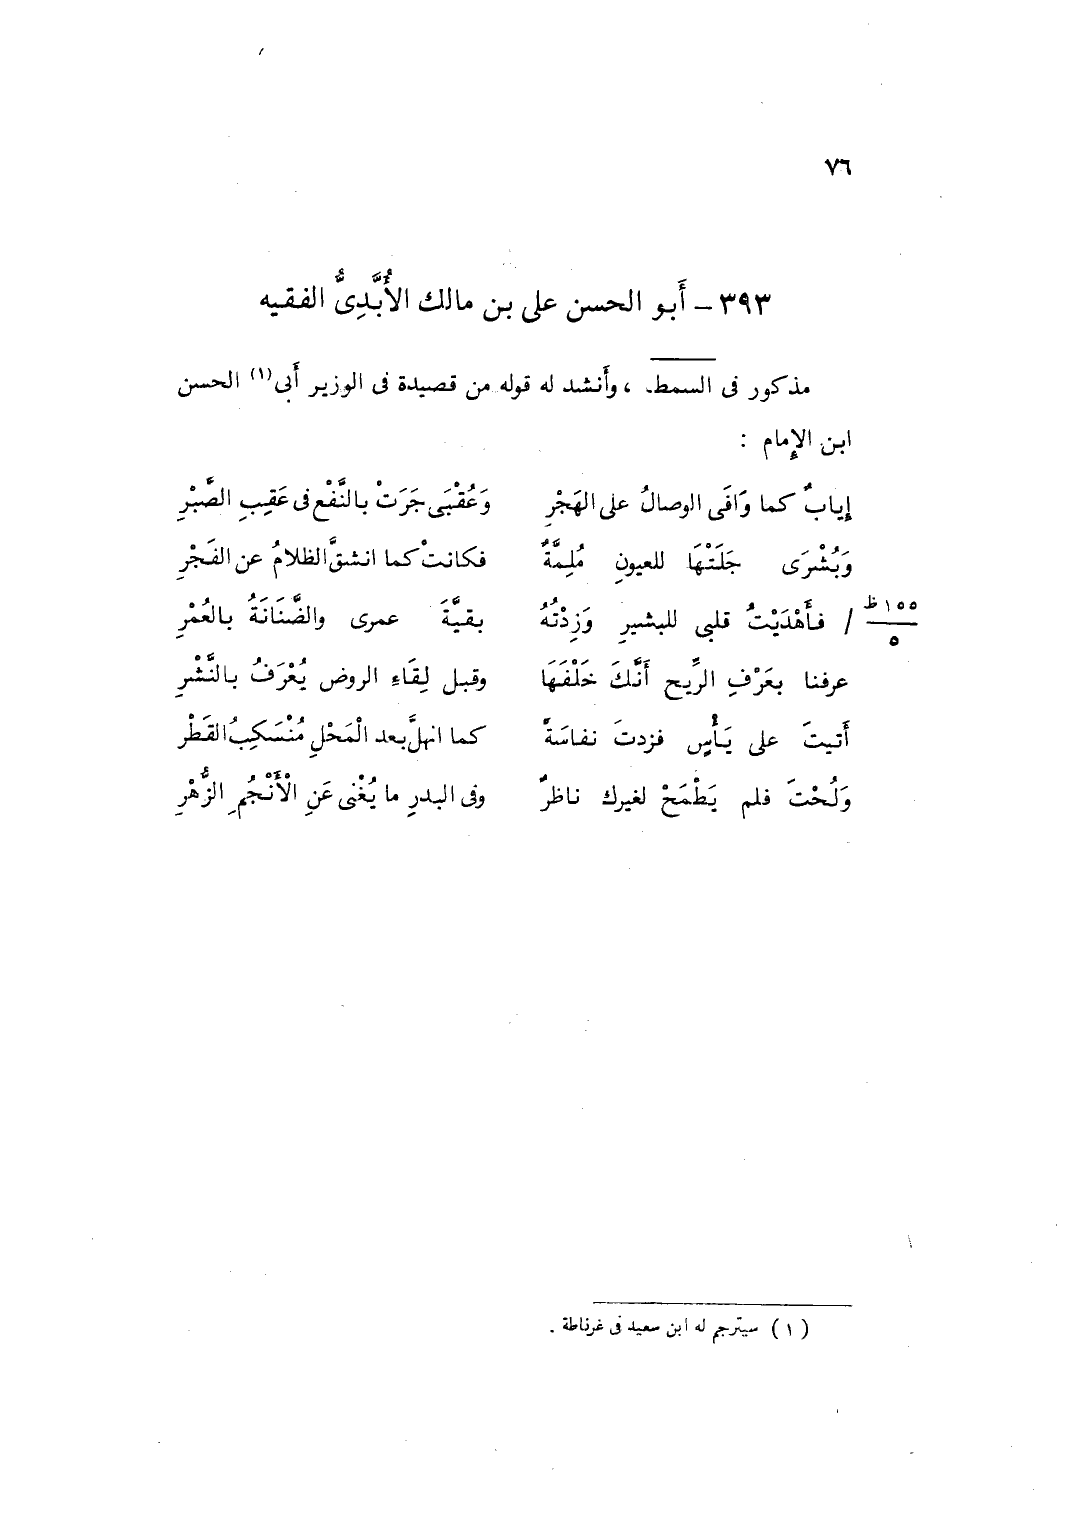 ٧٦
٣٩٣ - أَبو الحسن على بن مالك الأُبَّدِىُّ الفقيه
مذكور فى السمط ، وأَنشد له قوله من قصيدة فى الوزير أَبى(١) الحسن
ابن الإِمام :
إِيابٌ كما وَافَى الوصالُ على الهَجْرِ وَعُقْبَى جَرَتْ بالنَّفْع فى عَقِبِ الصَّبْرِ
وَبُشْرَى جَلَتْهَا للعيونِ مُلِمَّةٌ فكانتْ كما انشقَّ الظلامُ عن الفَجْرِ
/ فأَهْدَيْتُ قلبى للبشيرِ وَزِدْتُهُ بقيَّةَ عمرى والضَّنَانَةُ بالعُمْرِ ١٥٥ظ
٥
عرفنا بعَرْفِ الرِّيح أَنَّكَ خَلْفَهَا وقبل لِقَاءِ الروض يُعْرَفُ بالنَّشْرِ
أَتيتَ على يَأْسٍ فزدتَ نفاسَةً كما انهلَّ بعد الْمَحْلِ مُنْسَكِبُ القَطْرِ
وَلُحْتَ فلم يَطْمَحْ لغيرك ناظرٌ وفى البدرِ ما يُغْنى عَنِ الْأَنْجُمِ الزُّهْرِ
(١) سيترجم له ابن سعيد فى غرناطة .